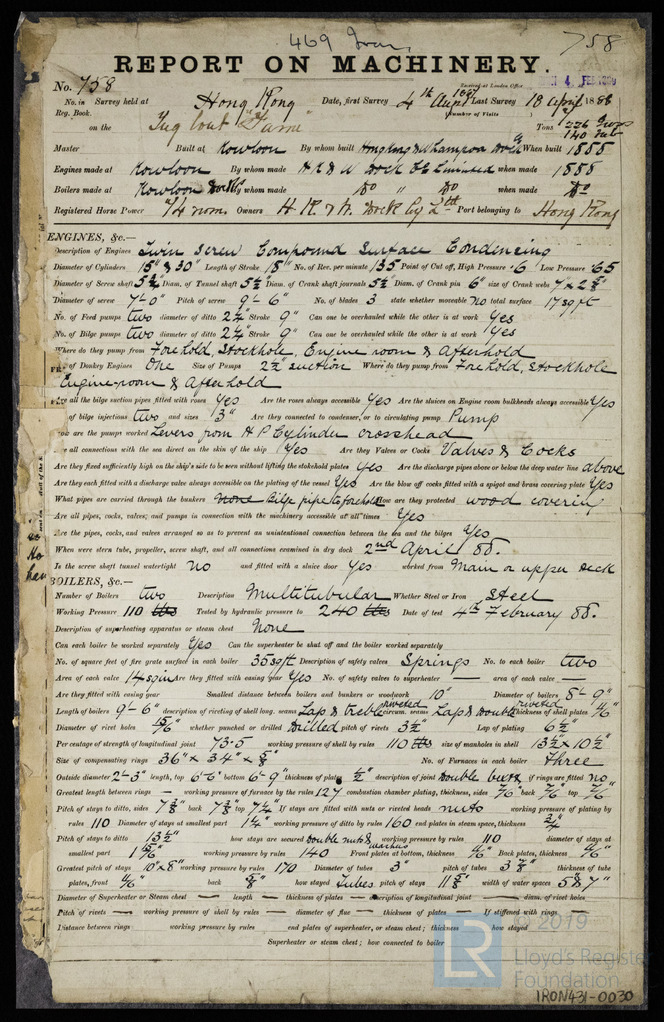 469 Iron 758
REPORT ON MACHINERY.
No. 758 Received at London Office 4 FEB 1889
No. in Survey held at Hong Kong Date, first Survey 4th Augt 1887 Last Survey 18 April 1888
Reg. Book. (Number of Visits
on the Tug boat "Fame" Tons 226 Gross 140 net
Master Built at Kowloon By whom built Hongkong & Whampoa Dock Co When built 1888
Engines made at Kowloon By whom made H.K. & W. Dock Co Limited when made 1888
Boilers made at Kowloon Docks By whom made Do " Do when made Do
Registered Horse Power 74 nom. Owners H. K. & W. Dock Coy Ltd Port belonging to Hong Kong
ENGINES, &c.—
Description of Engines Twin Screw Compound Surface Condensing
Diameter of Cylinders 15" & 30" Length of Stroke 18" No. of Rev. per minute 135 Point of Cut off, High Pressure .6 Low Pressure .65
Diameter of Screw shaft 5¾ Diam. of Tunnel shaft 5½ Diam. of Crank shaft journals 5½ Diam. of Crank pin 6" size of Crank webs 7" x 2⅞"
Diameter of screw 7'-0" Pitch of screw 9'-6" No. of blades 3 state whether moveable no total surface 17 sq ft
No. of Feed pumps two diameter of ditto 2¼" Stroke 9" Can one be overhauled while the other is at work Yes
No. of Bilge pumps two diameter of ditto 2¼" Stroke 9" Can one be overhauled while the other is at work Yes
Where do they pump from Forehold, Stockhole, Engine room & Afterhold
of Donkey Engines One Size of Pumps 2½" suction Where do they pump from Forehold, Stockhole
Engine-room & Afterhold
all the bilge suction pipes fitted with roses Yes Are the roses always accessible Yes Are the sluices on Engine room bulkheads always accessible Yes
of bilge injections two and sizes 3" Are they connected to condenser, or to circulating pump Pump
How are the pumps worked Levers from H P Cylinder crosshead
all connections with the sea direct on the skin of the ship Yes Are they Valves or Cocks Valves & Cocks
Are they fixed sufficiently high on the ship's side to be seen without lifting the stokehold plates Yes Are the discharge pipes above or below the deep water line above
Are they each fitted with a discharge valve always accessible on the plating of the vessel Yes Are the blow off cocks fitted with a spigot and brass covering plate Yes
What pipes are carried through the bunkers None Bilge pipe to forehold How are they protected wood covering
Are all pipes, cocks, valves; and pumps in connection with the machinery accessible at all times Yes
Are the pipes, cocks, and valves arranged so as to prevent an unintentional connection between the sea and the bilges Yes
When were stern tube, propeller, screw shaft, and all connections examined in dry dock 2nd April 88.
Is the screw shaft tunnel watertight no and fitted with a sluice door Yes worked from Main or upper deck
BOILERS, &c.—
Number of Boilers two Description Multitubular Whether Steel or Iron Steel
Working Pressure 110 lbs Tested by hydraulic pressure to 240 lbs Date of test 4th February 88.
Description of superheating apparatus or steam chest None
Can each boiler be worked separately Yes Can the superheater be shut off and the boiler worked separately
No. of square feet of fire grate surface in each boiler 35 sq ft Description of safety valves Springs No. to each boiler two
Area of each valve 14 sq ins Are they fitted with easing gear Yes No. of safety valves to superheater — area of each valve —
Are they fitted with easing gear Smallest distance between boilers and bunkers or woodwork 10" Diameter of boilers 8'-9"
Length of boilers 9'-6" description of riveting of shell long. seams Lap & treble riveted circum. seams Lap & Double riveted thickness of shell plates 11/16"
Diameter of rivet holes 15/16" whether punched or drilled Drilled pitch of rivets 3½" Lap of plating 6½"
Per centage of strength of longitudinal joint 73.5 working pressure of shell by rules 110 lbs size of manholes in shell 13½" x 10½"
Size of compensating rings 36" x 34" x ⅝" No. of Furnaces in each boiler three
Outside diameter 2'-3" length, top 6'-6" bottom 6'-9" thickness of plates ½" description of joint Double butt if rings are fitted no
Greatest length between rings — working pressure of furnace by the rules 127 combustion chamber plating, thickness, sides 7/16" back 7/16" top 7/16"
Pitch of stays to ditto, sides 7⅞" back 7⅞" top 7¼" If stays are fitted with nuts or riveted heads nuts working pressure of plating by
rules 110 Diameter of stays at smallest part 1¼" working pressure of ditto by rules 160 end plates in steam space, thickness ¾"
Pitch of stays to ditto 13½" how stays are secured double nuts & washers working pressure by rules 110 diameter of stays at
smallest part 1 15/16" working pressure by rules 140 Front plates at bottom, thickness 11/16" Back plates, thickness 11/16"
Greatest pitch of stays 10" x 8" working pressure by rules 170 Diameter of tubes 3" pitch of tubes 3⅞" thickness of tube
plates, front 11/16" back ⅝" how stayed Tubes pitch of stays 11⅝" width of water spaces 5 & 7"
Diameter of Superheater or Steam chest — length — thickness of plates — description of longitudinal joint — diam. of rivet holes
Pitch of rivets — working pressure of shell by rules — diameter of flue — thickness of plates — If stiffened with rings —
Distance between rings working pressure by rules end plates of superheater, or steam chest; thickness how stayed
Superheater or steam chest; how connected to boiler
© 2019
LR
Lloyd's Register
Foundation
IRON431-0030